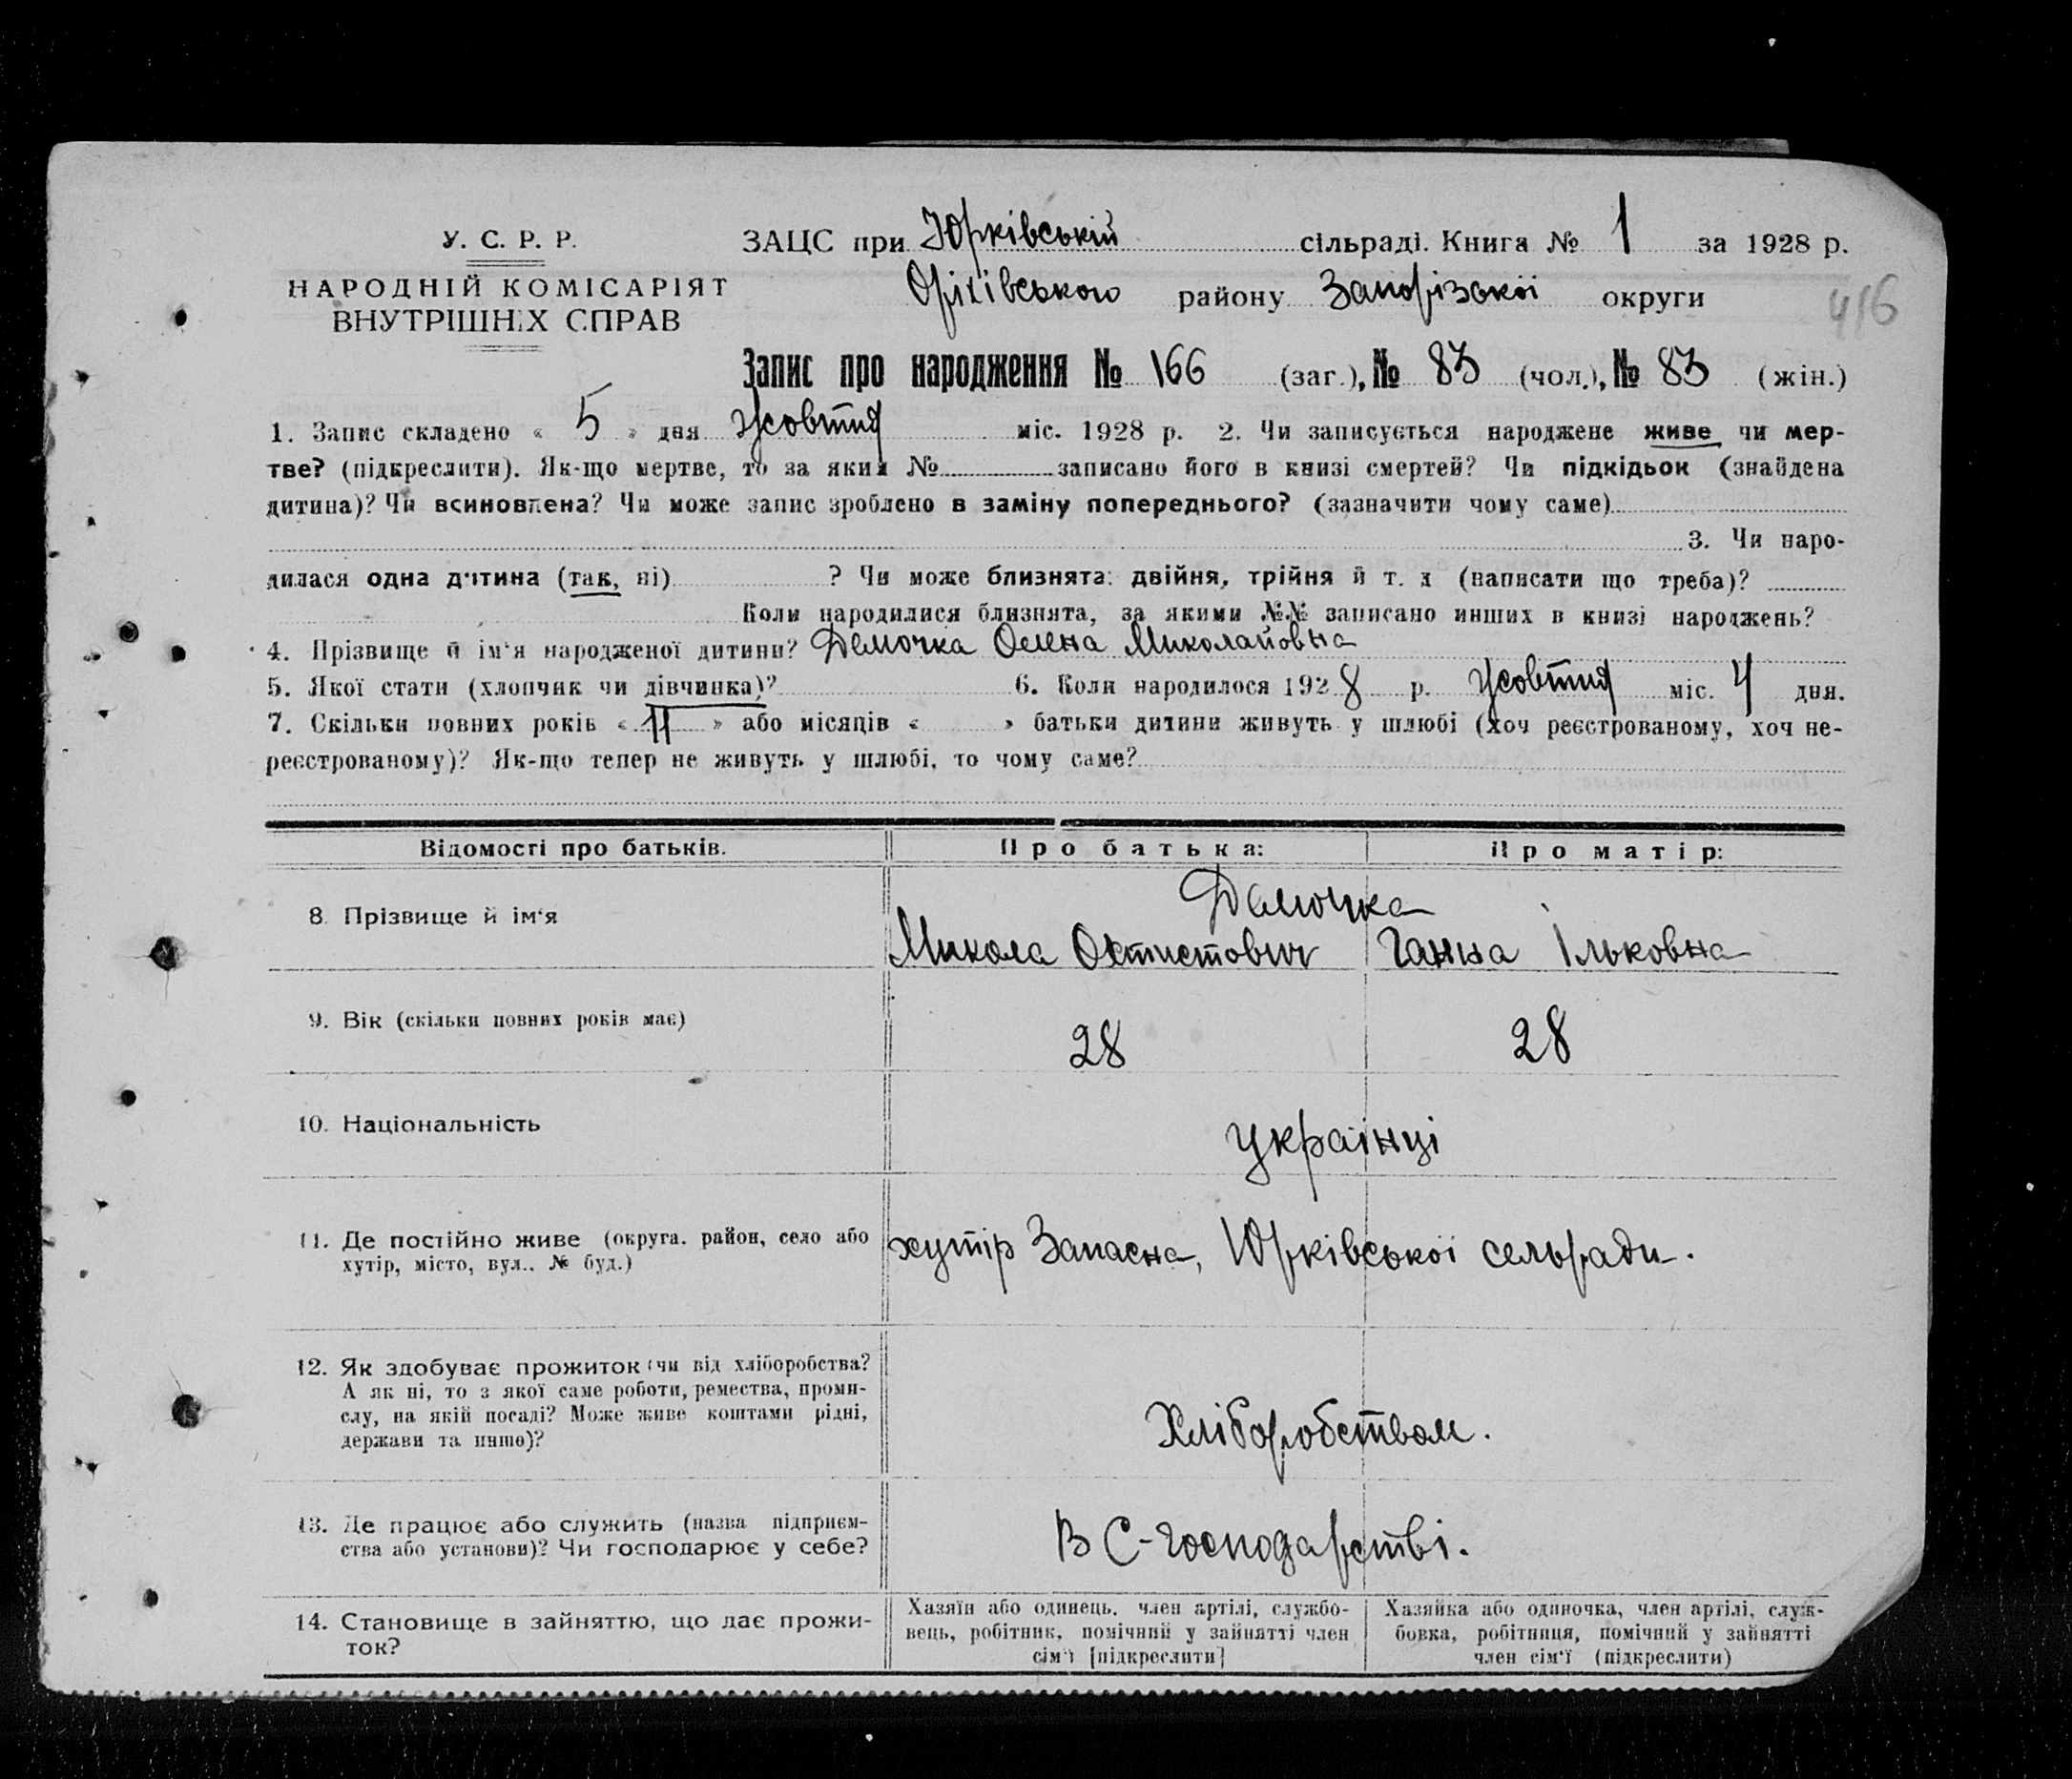 У. С. Р. Р.
НАРОДНІЙ КОМІСАРІЯТ
ВНУТРІШНІХ СПРАВ
ЗАЦС при Юрківській сільраді. Книга № 1 за 1928 р.
Оріхівського району Запорізької округи
416
Запис про народження № 166 (заг.), № 83 (чол.), № 83 (жін.)
1. Запис складено « 5 » дня Жовтня міс. 1928 р. 2. Чи записується народжене живе чи мер-
тве? (підкреслити). Як-що мертве, то за яким № записано його в книзі смертей? Чи підкідьок (знайдена
дитина)? Чи всиновлена? Чи може запис зроблено в заміну попереднього? (зазначити чому саме)
3. Чи наро-
дилася одна дитина (так, ні) ? Чи може близнята: двійня, трійня й т. д (написати що треба)?
Коли народилися близнята, за якими №№ записано инших в книзі народжень?
4. Прізвище й ім'я народженої дитини? Демочка Олена Миколайовна
5. Якої стати (хлопчик чи дівчинка)? 6. Коли народилося 1928 р. Жовтня міс. 4 дня.
7. Скільки повних років « 11 » або місяців « » батьки дитини живуть у шлюбі (хоч реєстрованому, хоч не-
реєстрованому)? Як-що тепер не живуть у шлюбі, то чому саме?
Відомості про батьків. Про батька: Про матір:
Демочка
8. Прізвище й ім'я Микола Октистович Ганна Ільковна
9. Вік (скільки повних років має) 28 28
10. Національність українці
11. Де постійно живе (округа. район, село або
хутір, місто, вул.. № буд.)
хутір Запасна, Юрківської сельради.
12. Як здобуває прожиток (чи від хліборобства?
А як ні, то з якої саме роботи, ремества, проми-
слу, на якій посаді? Може живе коштами рідні,
держави та инше)?
Хліборобством.
13. Де працює або служить (назва підприєм-
ства або установи)? Чи господарює у себе?
В С-господарстві.
14. Становище в зайняттю, що дає прожи-
ток?
Хазяїн або одинець. член артілі, службо-
вець, робітник, помічний у зайнятті член
сім'ї [підкреслити]
Хазяйка або одиночка, член артілі, служ-
бовка, робітниця, помічний у зайнятті
член сім'ї (підкреслити)